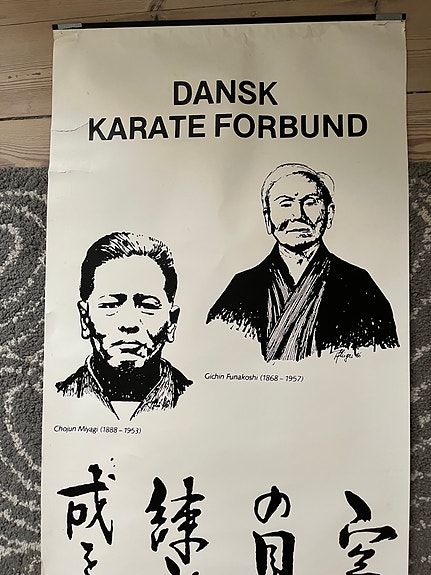 DANSK
KARATE FORBUND
Gichin Funakoshi (1868 – 1957)
Chojun Miyagi (1888 – 1953)
空
の目
練
成